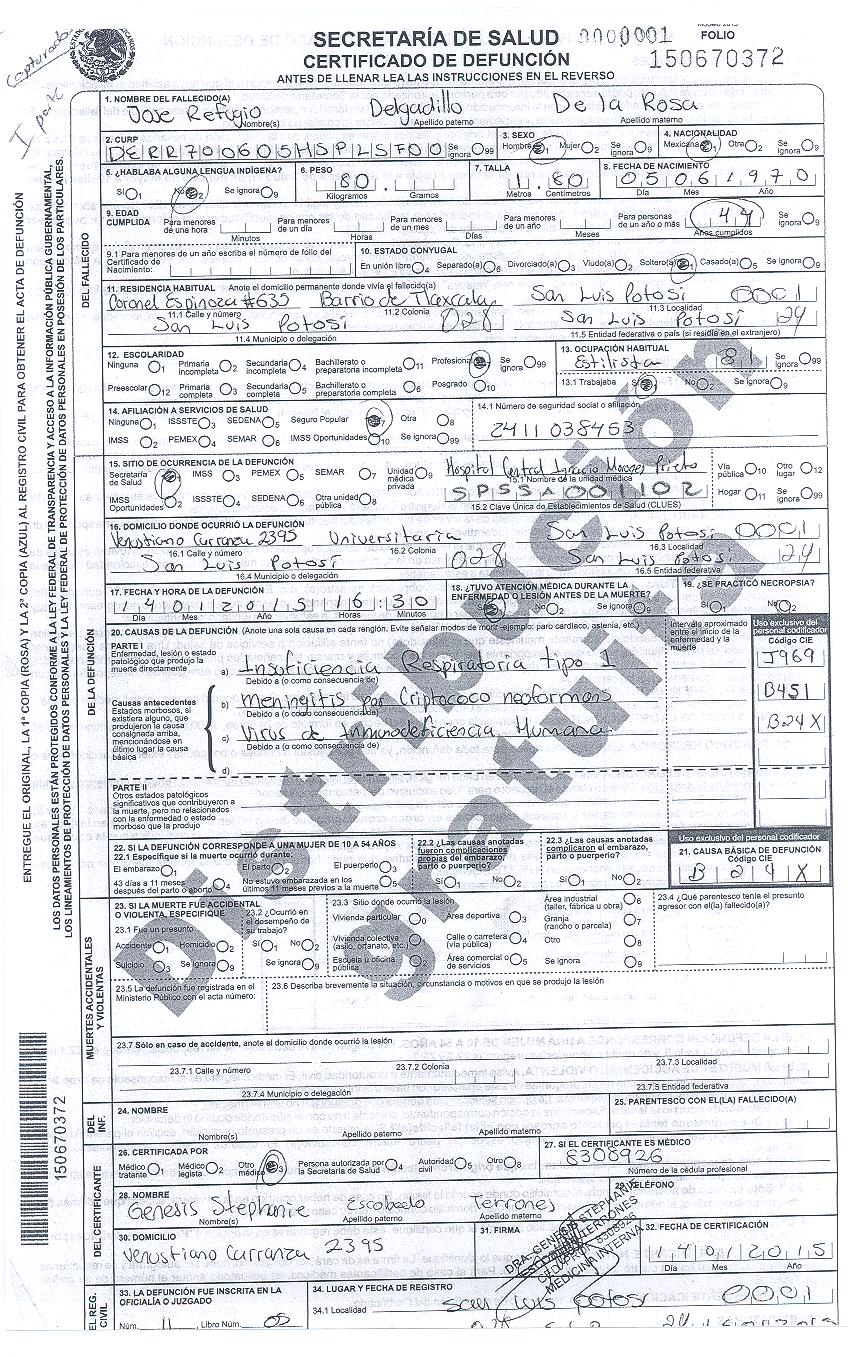 capturado
I parte
SECRETARÍA DE SALUD 0000001
CERTIFICADO DE DEFUNCIÓN
ANTES DE LLENAR LEA LAS INSTRUCCIONES EN EL REVERSO
FOLIO
150670372
ENTREGUE EL ORIGINAL, LA 1ª COPIA (ROSA) Y LA 2ª COPIA (AZUL) AL REGISTRO CIVIL PARA OBTENER EL ACTA DE DEFUNCIÓN
LOS DATOS PERSONALES ESTÁN PROTEGIDOS CONFORME A LA LEY FEDERAL DE TRANSPARENCIA Y ACCESO A LA INFORMACIÓN PÚBLICA GUBERNAMENTAL,
LOS LINEAMIENTOS DE PROTECCIÓN DE DATOS PERSONALES Y LA LEY FEDERAL DE PROTECCIÓN DE DATOS PERSONALES EN POSESIÓN DE LOS PARTICULARES.
150670372
Distribución gratuita
DEL FALLECIDO
1. NOMBRE DEL FALLECIDO(A)
Jose Refugio Delgadillo De la Rosa
Nombre(s) Apellido paterno Apellido materno
2. CURP DERR700605HSPLSF00 Se ignora 99
3. SEXO Hombre 1 Mujer 2 Se ignora 9
4. NACIONALIDAD Mexicana 1 Otra 2 Se ignora 9
5. ¿HABLABA ALGUNA LENGUA INDÍGENA? Sí 1 No 2 Se ignora 9
6. PESO 80 . Kilogramos Gramos
7. TALLA 1.80 Metros Centímetros
8. FECHA DE NACIMIENTO 05061970 Día Mes Año
9. EDAD CUMPLIDA Para menores de una hora Minutos Para menores de un día Horas Para menores de un mes Días Para menores de un año Meses Para personas de un año o más 44 Años cumplidos Se ignora 9
9.1 Para menores de un año escriba el número de folio del Certificado de Nacimiento:
10. ESTADO CONYUGAL En unión libre 4 Separado(a) 6 Divorciado(a) 3 Viudo(a) 2 Soltero(a) 1 Casado(a) 5 Se ignora 9
11. RESIDENCIA HABITUAL Anote el domicilio permanente donde vivía el fallecido(a)
Coronel Espinoza #635 Barrio de Tlaxcala San Luis Potosí 0001
11.1 Calle y número 11.2 Colonia 11.3 Localidad
San Luis Potosí 028 San Luis Potosí 24
11.4 Municipio o delegación 11.5 Entidad federativa o país (si residía en el extranjero)
12. ESCOLARIDAD
Ninguna 1 Primaria incompleta 2 Secundaria incompleta 4 Bachillerato o preparatoria incompleta 11 Profesional Se ignora 99
Preescolar 12 Primaria completa 3 Secundaria completa 5 Bachillerato o preparatoria completa 6 Posgrado 10
13. OCUPACIÓN HABITUAL
Estilista 81 Se ignora 99
13.1 Trabajaba Sí No 2 Se ignora 9
14. AFILIACIÓN A SERVICIOS DE SALUD
Ninguna 1 ISSSTE 3 SEDENA 5 Seguro Popular 7 Otra 8
IMSS 2 PEMEX 4 SEMAR 6 IMSS Oportunidades 10 Se ignora 99
14.1 Número de seguridad social o afiliación
2411038463
15. SITIO DE OCURRENCIA DE LA DEFUNCIÓN
Secretaría de Salud IMSS 3 PEMEX 5 SEMAR 7 Unidad médica privada 9
IMSS Oportunidades 2 ISSSTE 4 SEDENA 6 Otra unidad pública 8
Hospital Central Ignacio Morones Prieto
15.1 Nombre de la unidad médica
SPSSA001102
15.2 Clave Única de Establecimientos de Salud (CLUES)
Vía pública 10 Otro lugar 12
Hogar 11 Se ignora 99
DE LA DEFUNCIÓN
16. DOMICILIO DONDE OCURRIÓ LA DEFUNCIÓN
Venustiano Carranza 2395 Universitaria San Luis Potosí 0001
16.1 Calle y número 16.2 Colonia 16.3 Localidad
San Luis Potosí 028 San Luis Potosí 24
16.4 Municipio o delegación 16.5 Entidad federativa
17. FECHA Y HORA DE LA DEFUNCIÓN
14012015 16:30
Día Mes Año Horas Minutos
18. ¿TUVO ATENCIÓN MÉDICA DURANTE LA ENFERMEDAD O LESIÓN ANTES DE LA MUERTE?
Sí No 2 Se ignora 9
19. ¿SE PRACTICÓ NECROPSIA?
Sí 1 No 2
20. CAUSAS DE LA DEFUNCIÓN (Anote una sola causa en cada renglón. Evite señalar modos de morir -ejemplo: paro cardiaco, astenia, etc.)
Intervalo aproximado entre el inicio de la enfermedad y la muerte
Uso exclusivo del personal codificador
Código CIE
PARTE I
Enfermedad, lesión o estado patológico que produjo la muerte directamente
a) Insuficiencia Respiratoria tipo 1 J969
Debido a (o como consecuencia de)
Causas antecedentes
Estados morbosos, si existiera alguno, que produjeron la causa consignada arriba, mencionándose en último lugar la causa básica
b) meningitis por Criptococo neoformans B451
Debido a (o como consecuencia de)
c) Virus de Inmunodeficiencia Humana B24X
Debido a (o como consecuencia de)
d)
PARTE II
Otros estados patológicos significativos que contribuyeron a la muerte, pero no relacionados con la enfermedad o estado morboso que la produjo
22. SI LA DEFUNCIÓN CORRESPONDE A UNA MUJER DE 10 A 54 AÑOS
22.1 Especifique si la muerte ocurrió durante:
El embarazo 1 El parto 2 El puerperio 3
43 días a 11 meses después del parto o aborto 4 No estuvo embarazada en los últimos 11 meses previos a la muerte 5
22.2 ¿Las causas anotadas fueron complicaciones propias del embarazo, parto o puerperio?
Sí 1 No 2
22.3 ¿Las causas anotadas complicaron el embarazo, parto o puerperio?
Sí 1 No 2
Uso exclusivo del personal codificador
21. CAUSA BÁSICA DE DEFUNCIÓN
Código CIE
B24X
MUERTES ACCIDENTALES Y VIOLENTAS
23. SI LA MUERTE FUE ACCIDENTAL O VIOLENTA, ESPECIFIQUE
23.1 Fue un presunto
Accidente 1 Homicidio 2
Suicidio 3 Se ignora 9
23.2 ¿Ocurrió en el desempeño de su trabajo?
Sí 1 No 2
Se ignora 9
23.3 Sitio donde ocurrió la lesión
Vivienda particular 0 Área deportiva 3 Área industrial (taller, fábrica u obra) 6
Vivienda colectiva (asilo, orfanato, etc.) Calle o carretera (vía pública) 4 Granja (rancho o parcela) 7
Escuela u oficina pública 2 Área comercial o de servicios 5 Otro 8
Se ignora 9
23.4 ¿Qué parentesco tenía el presunto agresor con el(la) fallecido(a)?
23.5 La defunción fue registrada en el Ministerio Público con el acta número:
23.6 Describa brevemente la situación, circunstancia o motivos en que se produjo la lesión
23.7 Sólo en caso de accidente, anote el domicilio donde ocurrió la lesión
23.7.1 Calle y número 23.7.2 Colonia 23.7.3 Localidad
23.7.4 Municipio o delegación 23.7.5 Entidad federativa
DEL INF.
24. NOMBRE
Nombre(s) Apellido paterno Apellido materno
25. PARENTESCO CON EL(LA) FALLECIDO(A)
DEL CERTIFICANTE
26. CERTIFICADA POR
Médico tratante 1 Médico legista 2 Otro médico 3 Persona autorizada por la Secretaría de Salud 4 Autoridad civil 5 Otro 8
27. SI EL CERTIFICANTE ES MÉDICO
8308926
Número de la cédula profesional
28. NOMBRE
Genesis Stephanie Escobedo Terrones
Nombre(s) Apellido paterno Apellido materno
29. TELÉFONO
30. DOMICILIO
Venustiano Carranza 2395
31. FIRMA
DRA. GENESIS STEPHANIE
ESCOBEDO TERRONES
CED. PROF. 8308926
MEDICINA INTERNA
32. FECHA DE CERTIFICACIÓN
14012015
Día Mes Año
EL REG. CIVIL
33. LA DEFUNCIÓN FUE INSCRITA EN LA OFICIALÍA O JUZGADO
Núm. 11 , Libro Núm. 05
34. LUGAR Y FECHA DE REGISTRO
34.1 Localidad San Luis Potosí 0001